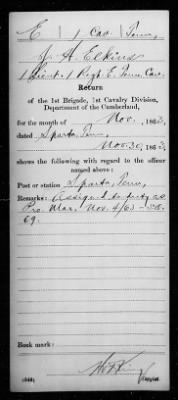 E | 1 Cav. | Tenn.
J. H. Elkins
1 Lieut., 1 Reg't E. Tenn. Cav.
Return
of the 1st Brigade, 1st Cavalry Division,
Department of the Cumberland,
for the month of Nov., 1863.
dated Sparta, Ten.,
Nov. 30, 1863
shows the following with regard to the officer
named above:
Post or station Sparta, Tenn.
Remarks: Assigned to duty as
Pro. Mar. Nov. 4/63
69.
Book mark:
(646)
Copyist.